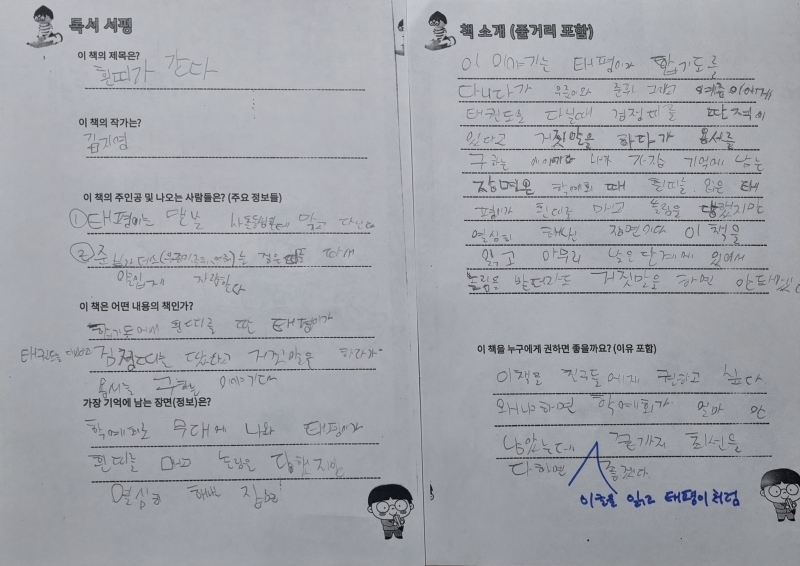 독서 서평
이 책의 제목은?
흰띠가 간다
이 책의 작가는?
김지영
이 책의 주인공 및 나오는 사람들은? (주요 정보들)
① 태평이는
②
자랑한다
이 책은 어떤 내용의 책인가?
합기도에서 흰띠를 딴 태평이가
태권도를 검정띠를 땄다고 거짓말을 하다가
용서를 구하는 이야기다
가장 기억에 남는 장면(정보)은?
학예회로 무대에 나와 태평이가
흰띠를 매고 놀림을 당했지만
열심히
책 소개 (줄거리 포함)
이 이야기는 태평이가 합기도를
다니다가 그리고 예종이에게
태권도를 다닐때 검정띠를 딴적이
있다고 거짓말을 하다가 용서를
구하는 내가 가장 기억에 남는
장면은 학예회 때 흰띠를 입은 태
평이가 흰띠를 매고 놀림을 당했지만
열심히 해낸 장면이다 이 책을
읽고 아무리 낮은 단계에 있어서
놀림을 받더라도 거짓말을 하면 안되겠다
이 책을 누구에게 권하면 좋을까요? (이유 포함)
이책을 친구들에게 권하고 싶다
왜냐하면 학예회가 얼마 안
남았는데 끝까지 최선을
다하면 좋겠다
이책을 읽고 태평이처럼